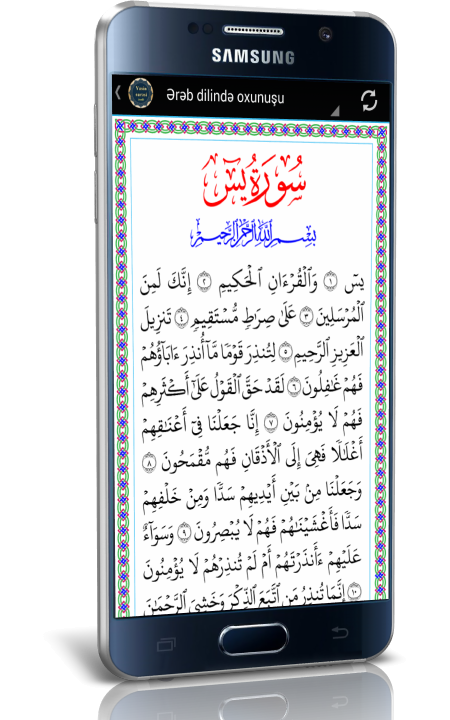 SAMSUNG
Ərəb dilində oxunuşu
سُورَةُ يسٓ
بِسْمِ اللَّهِ الرَّحْمَٰنِ الرَّحِيمِ
يسٓ ١ وَٱلْقُرْءَانِ ٱلْحَكِيمِ ٢ إِنَّكَ لَمِنَ
ٱلْمُرْسَلِينَ ٣ عَلَىٰ صِرَٰطٍ مُّسْتَقِيمٍ ٤ تَنزِيلَ
ٱلْعَزِيزِ ٱلرَّحِيمِ ٥ لِتُنذِرَ قَوْمًا مَّآ أُنذِرَ ءَابَآؤُهُمْ
فَهُمْ غَٰفِلُونَ ٦ لَقَدْ حَقَّ ٱلْقَوْلُ عَلَىٰٓ أَكْثَرِهِمْ
فَهُمْ لَا يُؤْمِنُونَ ٧ إِنَّا جَعَلْنَا فِىٓ أَعْنَٰقِهِمْ
أَغْلَٰلًا فَهِىَ إِلَى ٱلْأَذْقَانِ فَهُم مُّقْمَحُونَ ٨
وَجَعَلْنَا مِنۢ بَيْنِ أَيْدِيهِمْ سَدًّا وَمِنْ خَلْفِهِمْ
سَدًّا فَأَغْشَيْنَٰهُمْ فَهُمْ لَا يُبْصِرُونَ ٩ وَسَوَآءٌ
عَلَيْهِمْ ءَأَنذَرْتَهُمْ أَمْ لَمْ تُنذِرْهُمْ لَا يُؤْمِنُونَ
١٠ إِنَّمَا تُنذِرُ مَنِ ٱتَّبَعَ ٱلذِّكْرَ وَخَشِىَ ٱلرَّحْمَٰنَ